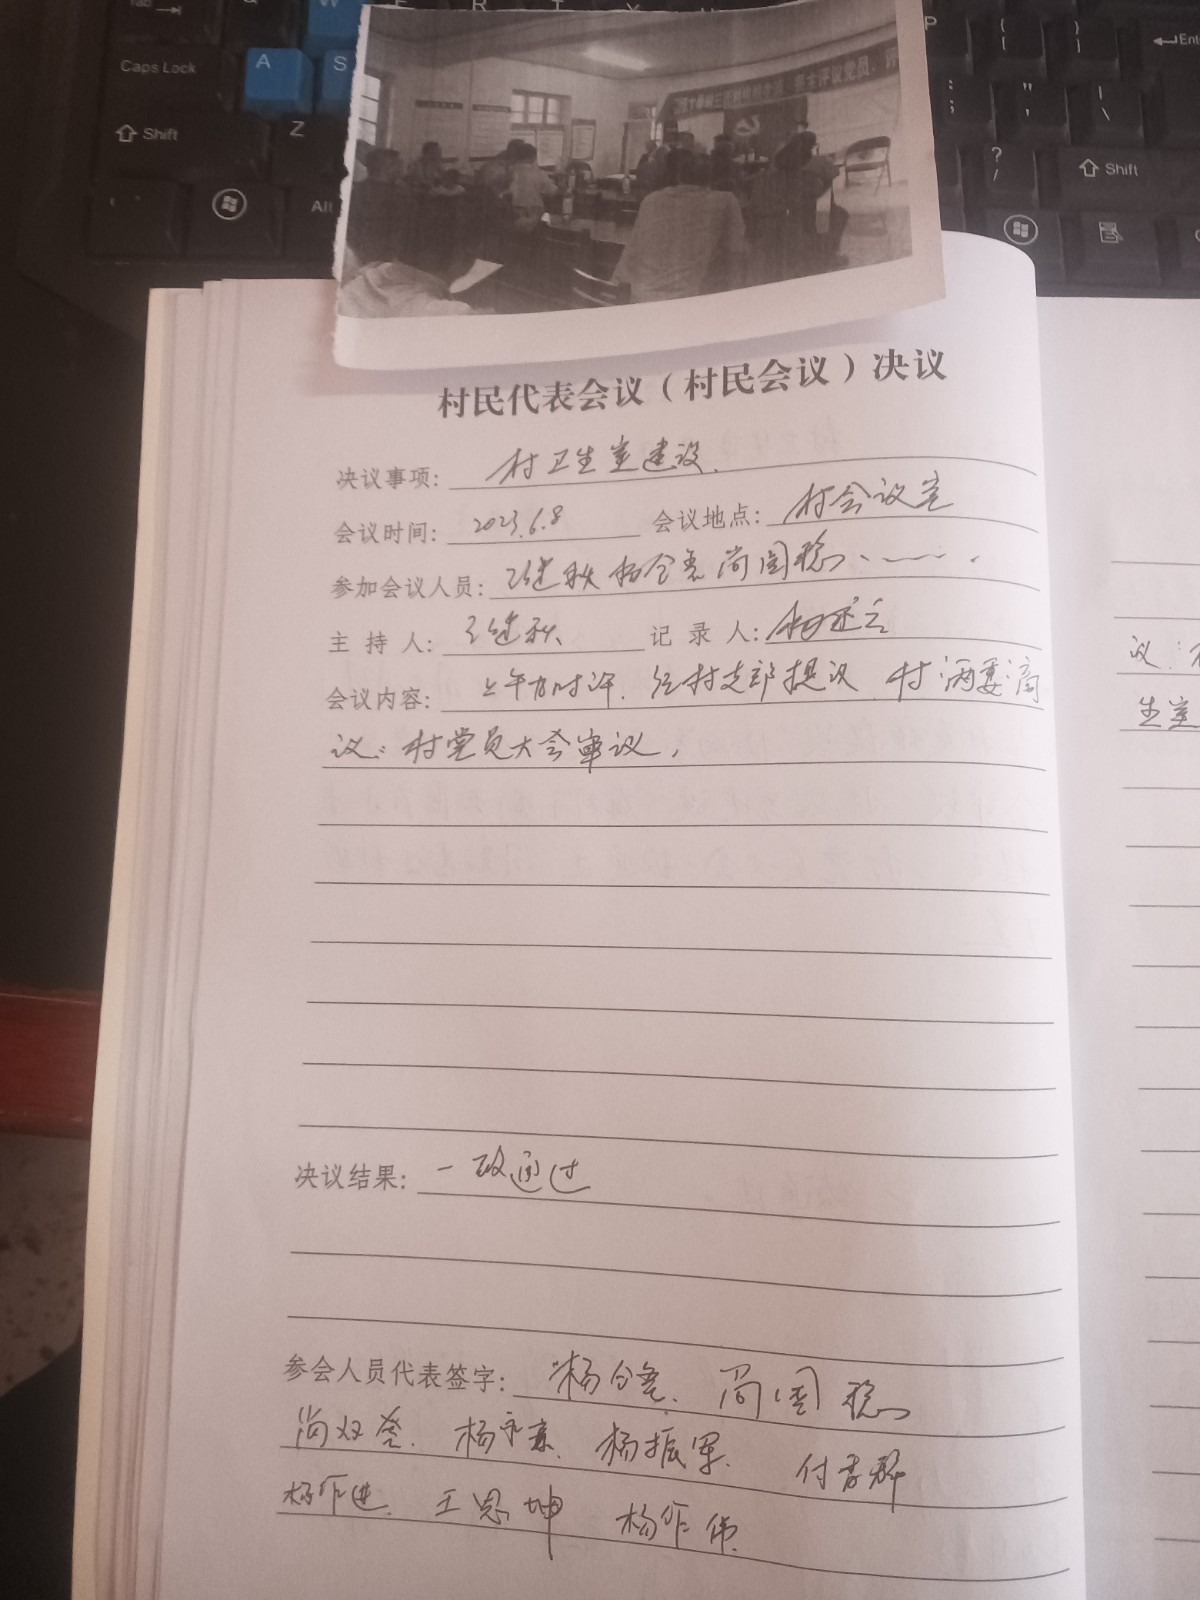 Tab
W E R T Y
P
{ [
} ]
Enter
Caps Lock
A
S
: ;
" '
| \
Shift
Z
? /
Shift
Alt
民主评议党员
村民代表会议（村民会议）决议
决议事项：村卫生室建设.
会议时间：2023.6.8 会议地点：村会议室
参加会议人员：继秋 杨 尚国稳、
主持人：继秋 记录人：杨
会议内容：上午九时许．经村支部提议 村两委商
议：村党员大会审议，
决议结果：一致通过
参会人员代表签字：杨 尚国稳
尚双 杨永 杨振军. 付
杨作进. 王恩坤 杨作伟
议：
生室